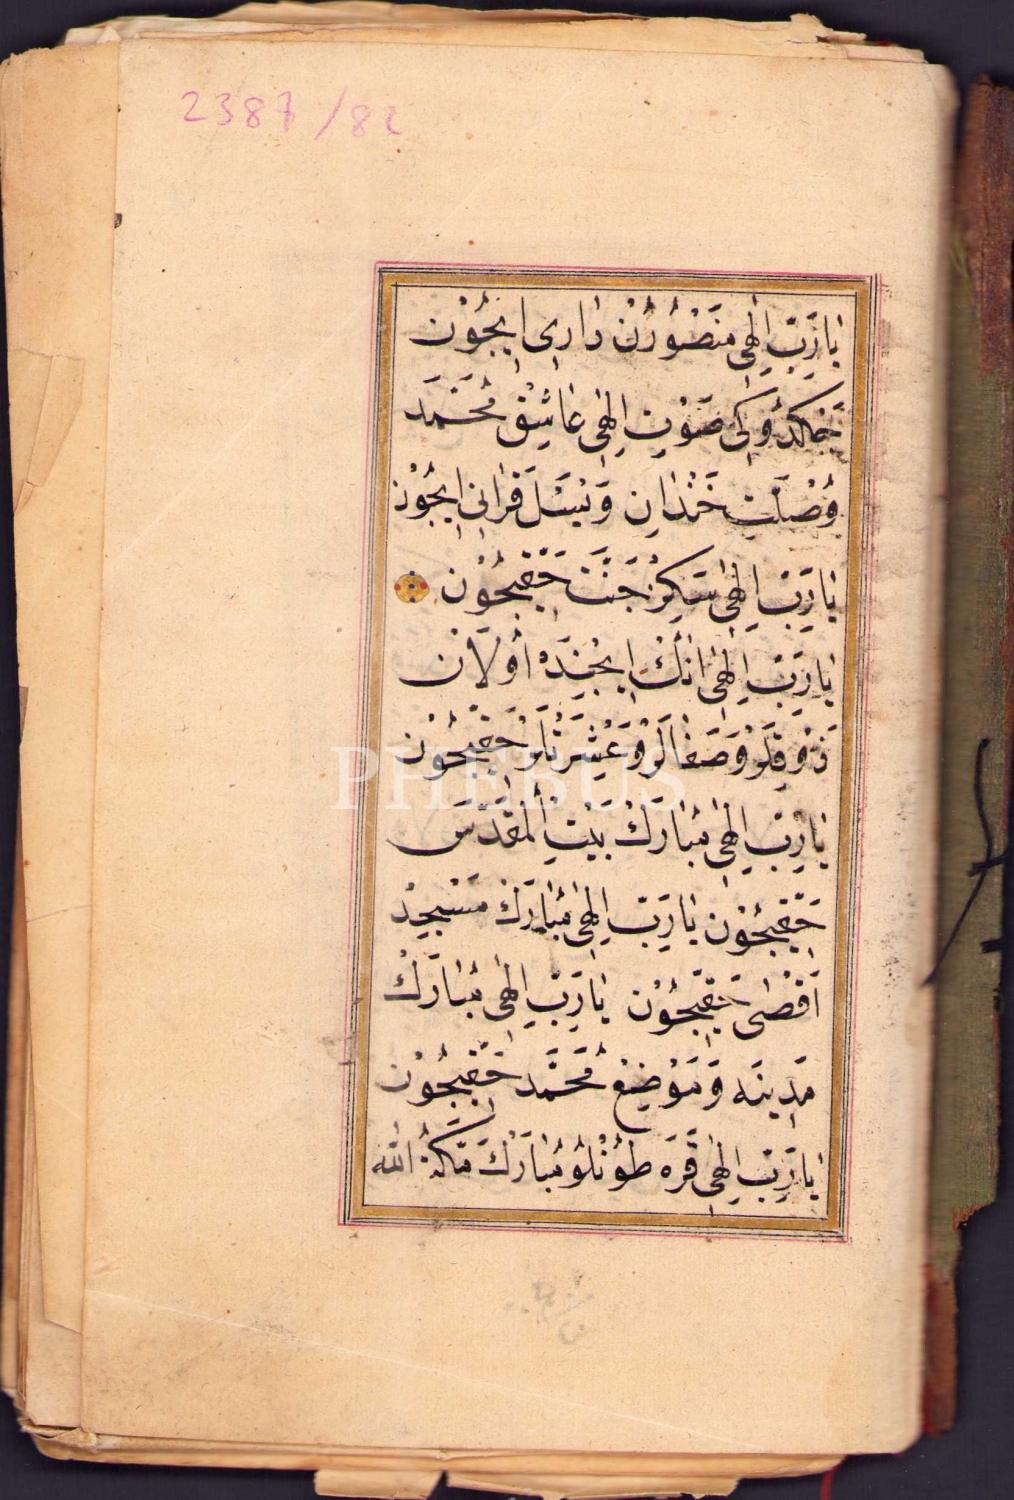 2387/82
يَارَبِّ اِلٰهِي مَنْصُورُنْ دَارِى ايچُوْن
چَكْدُوكِى صَوْتِ اِلٰهِى عَاشِقِ مُحَمَّد
وُصْلَتِ خَنْدَانِ وَيْسَلْ قَرَانِى ايچُوْن
يَارَبِّ اِلٰهِى سَكِزْ جَنَّتْ حَقِّيچُوْن
يَارَبِّ اِلٰهِى اَنْكْ ايچِنْدَه اُولَانْ
ذَوْقِلَرْ وَصَفَالَرْ وَعِشْرَتْلَرْ حَقِّيچُوْن
يَارَبِّ اِلٰهِى مُبَارَكْ بَيْتِ الْمُقَدَّسْ
حَقِّيچُوْن يَارَبِّ اِلٰهِى مُبَارَكْ مَسْجِدْ
اَقْصٰى حَقِّيچُوْن يَارَبِّ اِلٰهِى مُبَارَكْ
مَدِينَه وَمَوْضِعْ مُحَمَّد حَقِّيچُوْن
يَارَبِّ اِلٰهِى قَرَه طُونْلُو مُبَارَكْ مَكَّةُ اللّٰه
PHEBUS